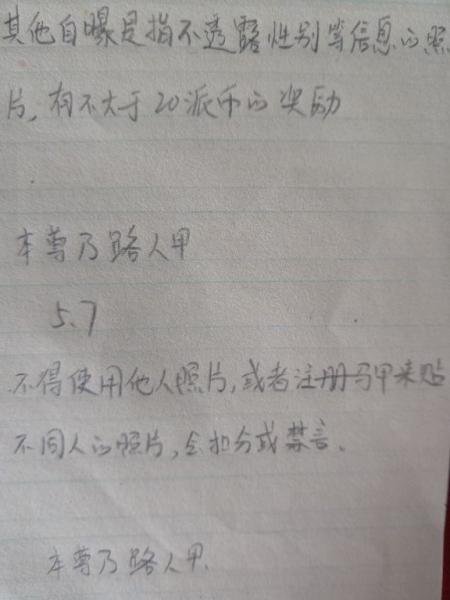 其他自曝是指不透露性别等信息的照
片,有不大于20派币的奖励
本尊乃路人甲
5.7
不得使用他人照片,或者注册马甲来贴
不同人的照片,会扣分或禁言。
本尊乃路人甲.